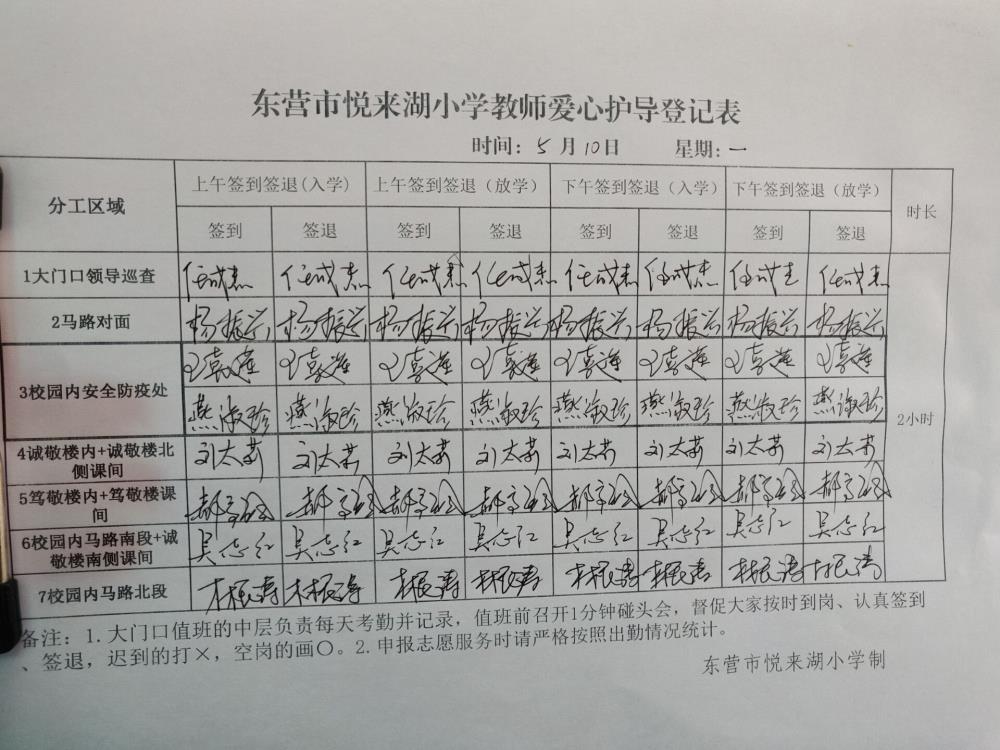 东营市悦来湖小学教师爱心护导登记表
时间: 5 月 10日 星期: 一
分工区域 上午签到签退(入学) 上午签到签退（放学） 下午签到签退（入学） 下午签到签退（放学） 时长
签到 签退 签到 签退 签到 签退 签到 签退
1大门口领导巡查 任成杰 任成杰 任成杰 任成杰 任成杰 任成杰 任成杰 任成杰
2马路对面 杨振兴 杨振兴 杨振兴 杨振兴 杨振兴 杨振兴 杨振兴 杨振兴
3校园内安全防疫处 王喜莲 王喜莲 王喜莲 王喜莲 王喜莲 王喜莲 王喜莲 王喜莲
燕淑珍 燕淑珍 燕淑珍 燕淑珍 燕淑珍 燕淑珍 燕淑珍 燕淑珍
2小时
4诚敬楼内+诚敬楼北
侧课间
刘太荣 刘太荣 刘太荣 刘太荣 刘太荣 刘太荣 刘太荣 刘太荣
5笃敬楼内+笃敬楼课
间
6校园内马路南段+诚
敬楼南侧课间
吴志红 吴志红 吴志红 吴志红 吴志红 吴志红 吴志红 吴志红
7校园内马路北段
备注: 1. 大门口值班的中层负责每天考勤并记录，值班前召开1分钟碰头会，督促大家按时到岗、认真签到
、签退，迟到的打×，空岗的画〇。2. 申报志愿服务时请严格按照出勤情况统计。
东营市悦来湖小学制